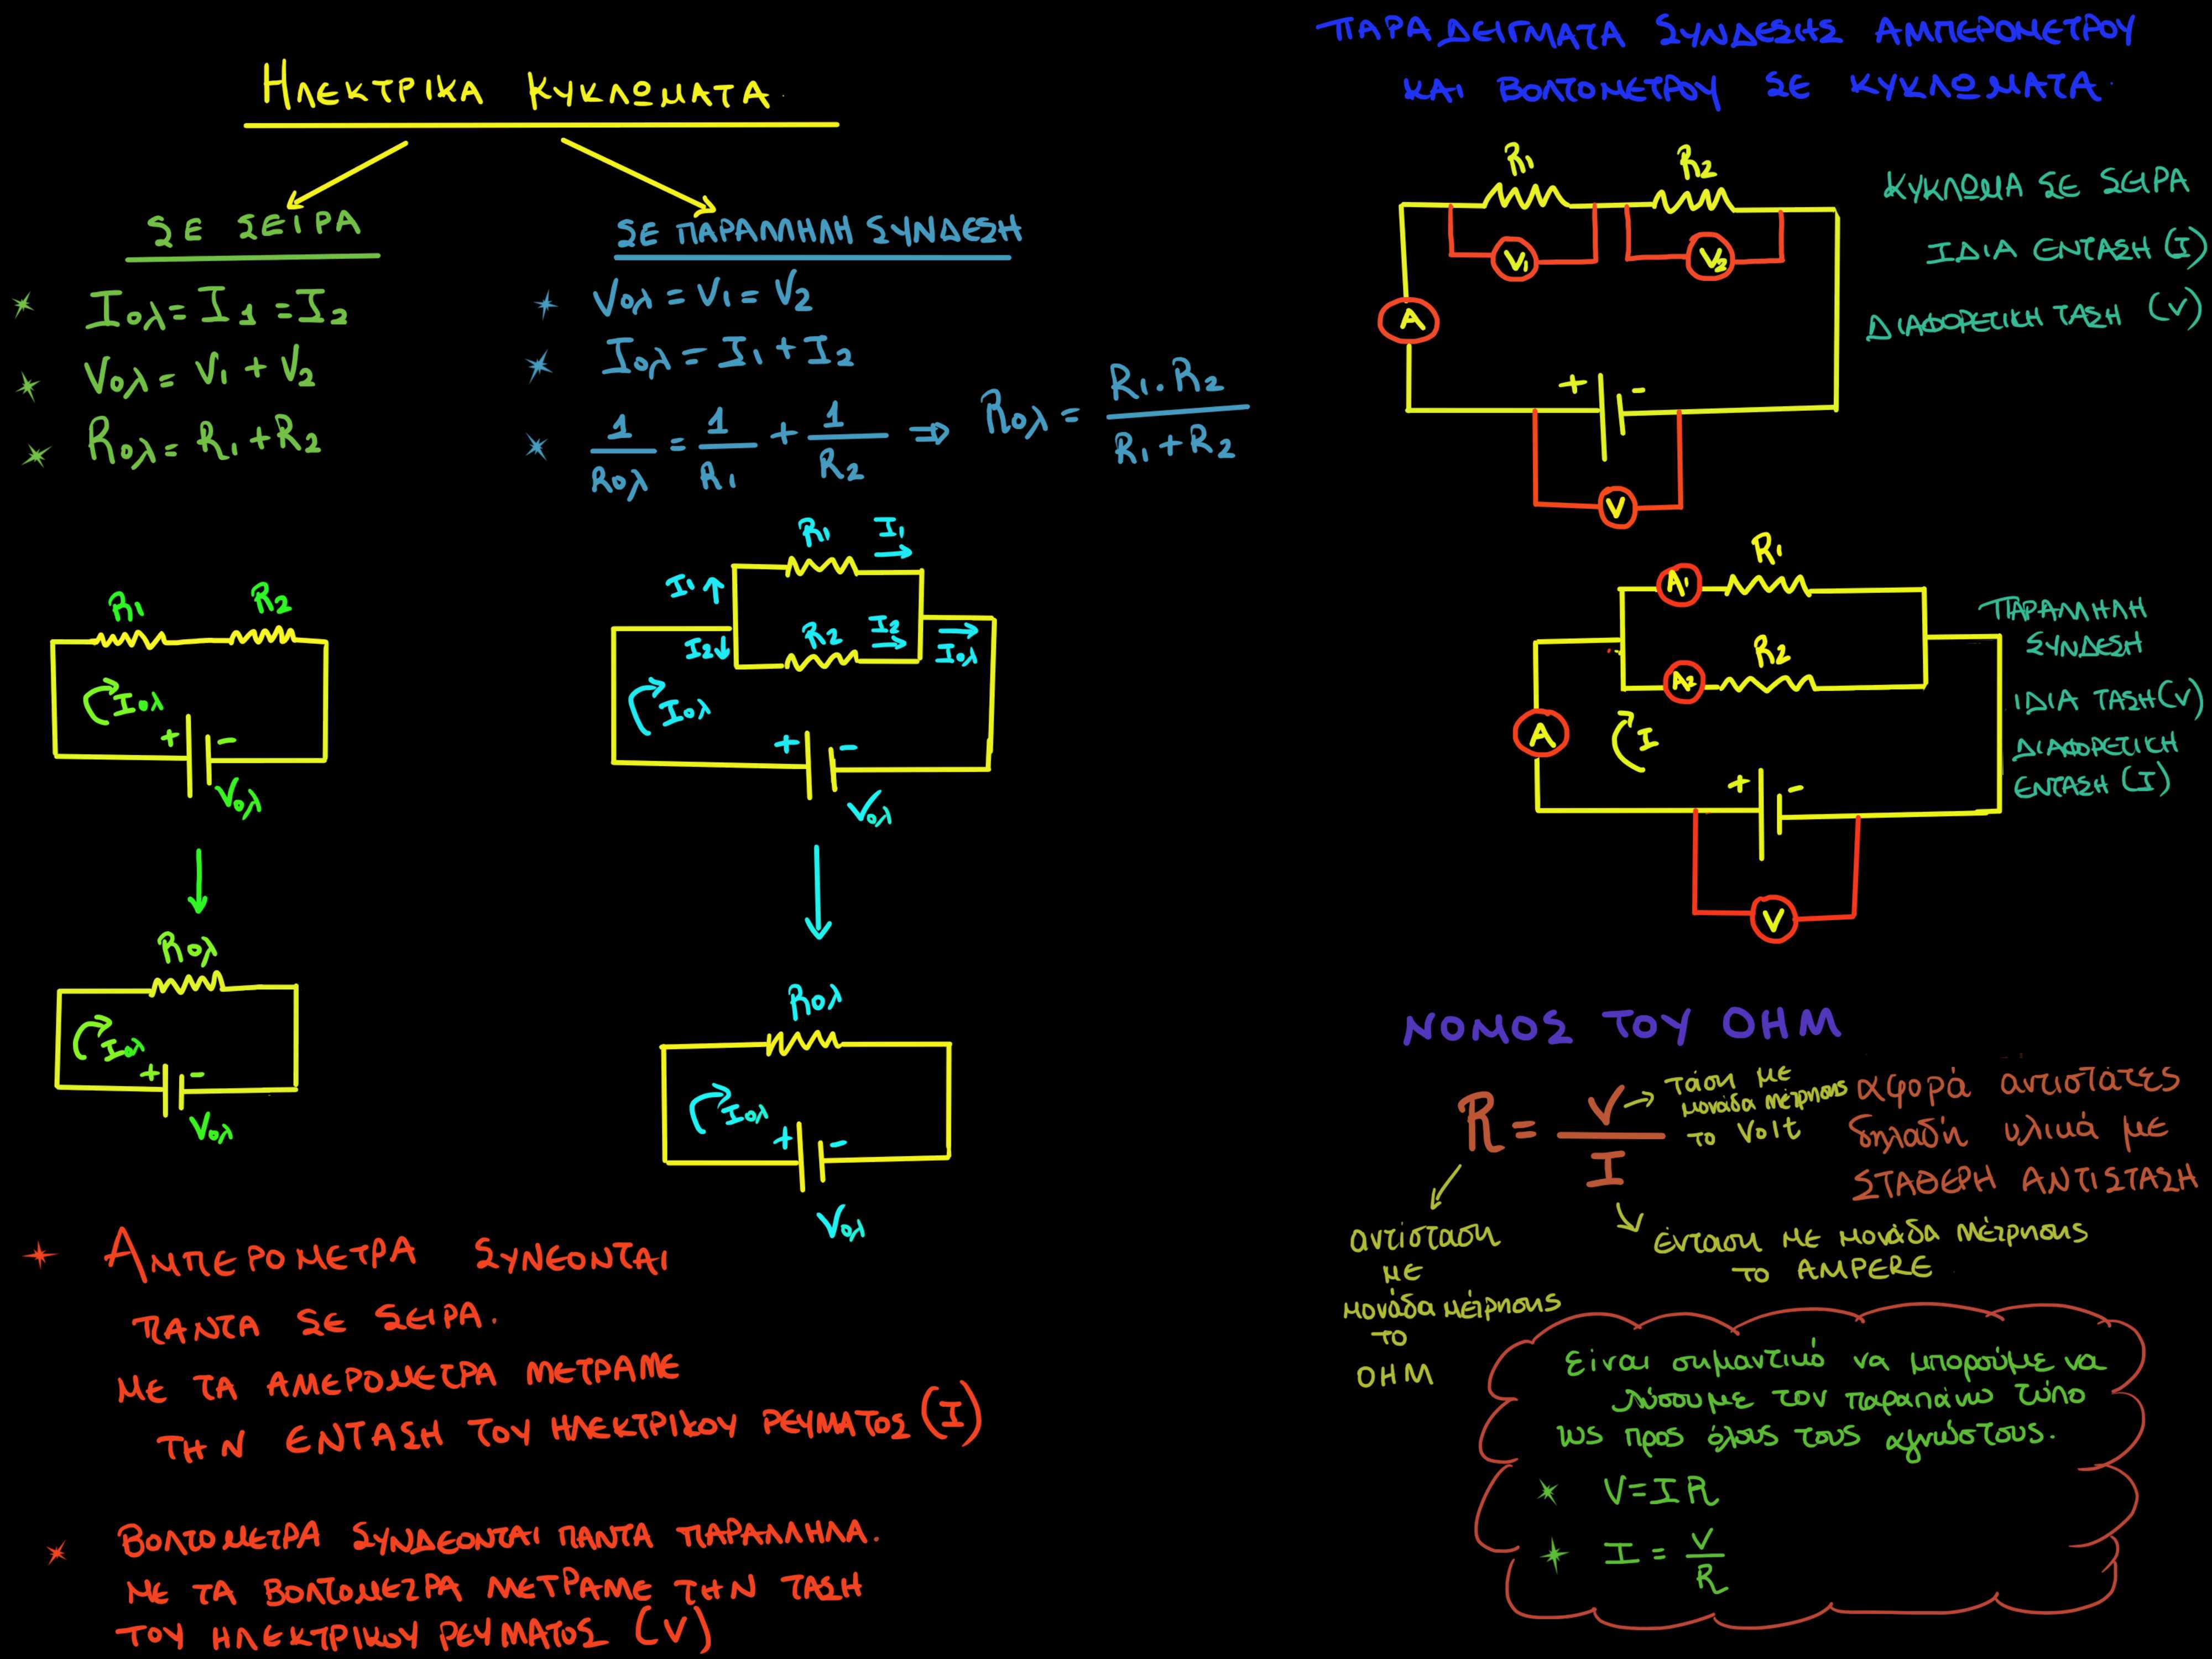 ΗΛΕΚΤΡΙΚΑ ΚΥΚΛΩΜΑΤΑ.
ΣΕ ΣΕΙΡΑ
* Ιολ = Ι1 = Ι2
* Vολ = V1 + V2
* Rολ = R1 + R2
ΣΕ ΠΑΡΑΛΛΗΛΗ ΣΥΝΔΕΣΗ
* Vολ = V1 = V2
* Ιολ = Ι1 + Ι2
* 1/Rολ = 1/R1 + 1/R2 ⇒ Rολ = R1·R2/R1+R2
R1 R2
Ιολ
+ -
Vολ
Rολ
Ιολ
+ -
Vολ
R1 Ι1
Ι1
R2 Ι2
Ι2 Ιολ
Ιολ
+ -
Vολ
Rολ
Ιολ
+ -
Vολ
* ΑΜΠΕΡΟΜΕΤΡΑ ΣΥΝΕΟΝΤΑΙ
ΠΑΝΤΑ ΣΕ ΣΕΙΡΑ.
ΜΕ ΤΑ ΑΜΕΡΟΜΕΤΡΑ ΜΕΤΡΑΜΕ
ΤΗΝ ΕΝΤΑΣΗ ΤΟΥ ΗΛΕΚΤΡΙΚΟΥ ΡΕΥΜΑΤΟΣ (Ι)
* ΒΟΛΤΟΜΕΤΡΑ ΣΥΝΔΕΟΝΤΑΙ ΠΑΝΤΑ ΠΑΡΑΛΛΗΛΑ.
ΜΕ ΤΑ ΒΟΛΤΟΜΕΤΡΑ ΜΕΤΡΑΜΕ ΤΗΝ ΤΑΣΗ
ΤΟΥ ΗΛΕΚΤΡΙΚΟΥ ΡΕΥΜΑΤΟΣ (V)
ΠΑΡΑΔΕΙΓΜΑΤΑ ΣΥΝΔΕΣΗΣ ΑΜΠΕΡΟΜΕΤΡΟΥ
ΚΑΙ ΒΟΛΤΟΜΕΤΡΟΥ ΣΕ ΚΥΚΛΩΜΑΤΑ.
R1 R2
V1 V2
A
+ -
V
ΚΥΚΛΩΜΑ ΣΕ ΣΕΙΡΑ
ΙΔΙΑ ΕΝΤΑΣΗ (Ι)
ΔΙΑΦΟΡΕΤΙΚΗ ΤΑΣΗ (V)
A1 R1
A2 R2
A
Ι
+ -
V
ΠΑΡΑΛΛΗΛΗ
ΣΥΝΔΕΣΗ
ΙΔΙΑ ΤΑΣΗ (V)
ΔΙΑΦΟΡΕΤΙΚΗ
ΕΝΤΑΣΗ (Ι)
ΝΟΜΟΣ ΤΟΥ OHM
R = V/I
τάση με
μονάδα μέτρησης
το Volt
αφορά αντιστάτες
δηλαδή υλικά με
ΣΤΑΘΕΡΗ ΑΝΤΙΣΤΑΣΗ
αντίσταση
με
μονάδα μέτρησης
το
OHM
ένταση με μονάδα μέτρησης
το AMPERE
Είναι σημαντικό να μπορούμε να
λύσουμε τον παραπάνω τύπο
ως προς όλους τους αγνώστους.
* V=IR
* I = V/R